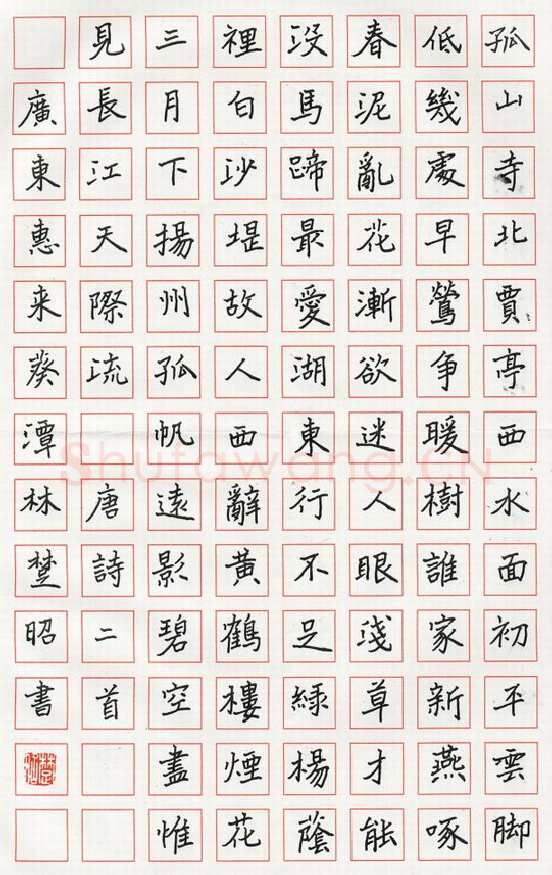 孤山寺北賈亭西水面初平雲脚
低幾處早鶯争暖樹誰家新燕啄
春泥亂花漸欲迷人眼淺草才能
没馬蹄最愛湖東行不足綠楊蔭
裡白沙堤故人西辭黃鶴樓煙花
三月下揚州孤帆遠影碧空盡惟
見長江天際流 唐詩二首
廣東惠来葵潭林楚昭書
Shufawang.CN